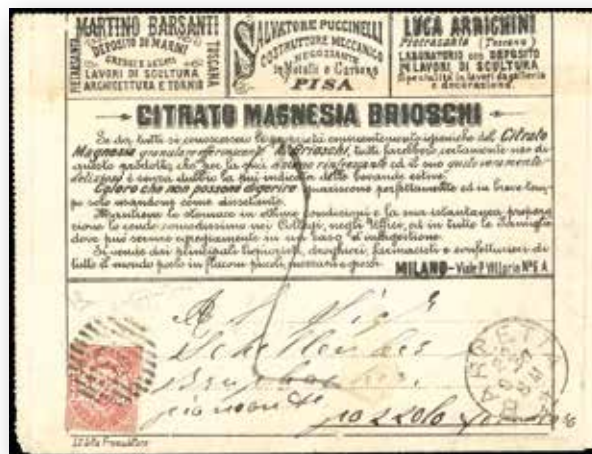 MARTINO BARSANTI
DEPOSITO DI MARMI
GREGGI E LAVORATI
LAVORI DI SCULTURA
ARCHITETTURA E TORNIO
PIETRASANTA
TOSCANA
SALVATORE PUCCINELLI
COSTRUTTORE MECCANICO
NEGOZIANTE
in Metalli e Carbone
PISA
LUCA ARRIGHINI
Pietrasanta (Toscana)
LABORATORIO con DEPOSITO
DI LAVORI DI SCULTURA
Specialità in lavori da galleria
e decorazione.
CITRATO MAGNESIA BRIOSCHI
Se da tutti si conoscessero le proprietà eminentemente igieniche del Citrato
Magnesia granulare effervescente A. Brioschi, tutti farebbero certamente uso di
questo prodotto che per la sua azione rinfrescante ed il suo gusto veramente
delizioso è senza dubbio la più indicata delle bevande estive.
Coloro che non possono digerire guariscono perfettamente ed in breve tem-
po solo usandone come dissetante.
Mantiene lo stomaco in ottime condizioni e la sua istantanea prepara
zione lo rende comodissimo nei Collegi, negli Uffici, ed in tutte le Famiglie
dove può servire egregiamente in un caso d'indigestione.
Si vende dai principali liquoristi, droghieri, farmacisti e confetturieri di
tutto il mondo posto in flaconi piccoli, mezzani e grossi.
MILANO - Viale P. Vittoria N° 6 A
BARLETTA